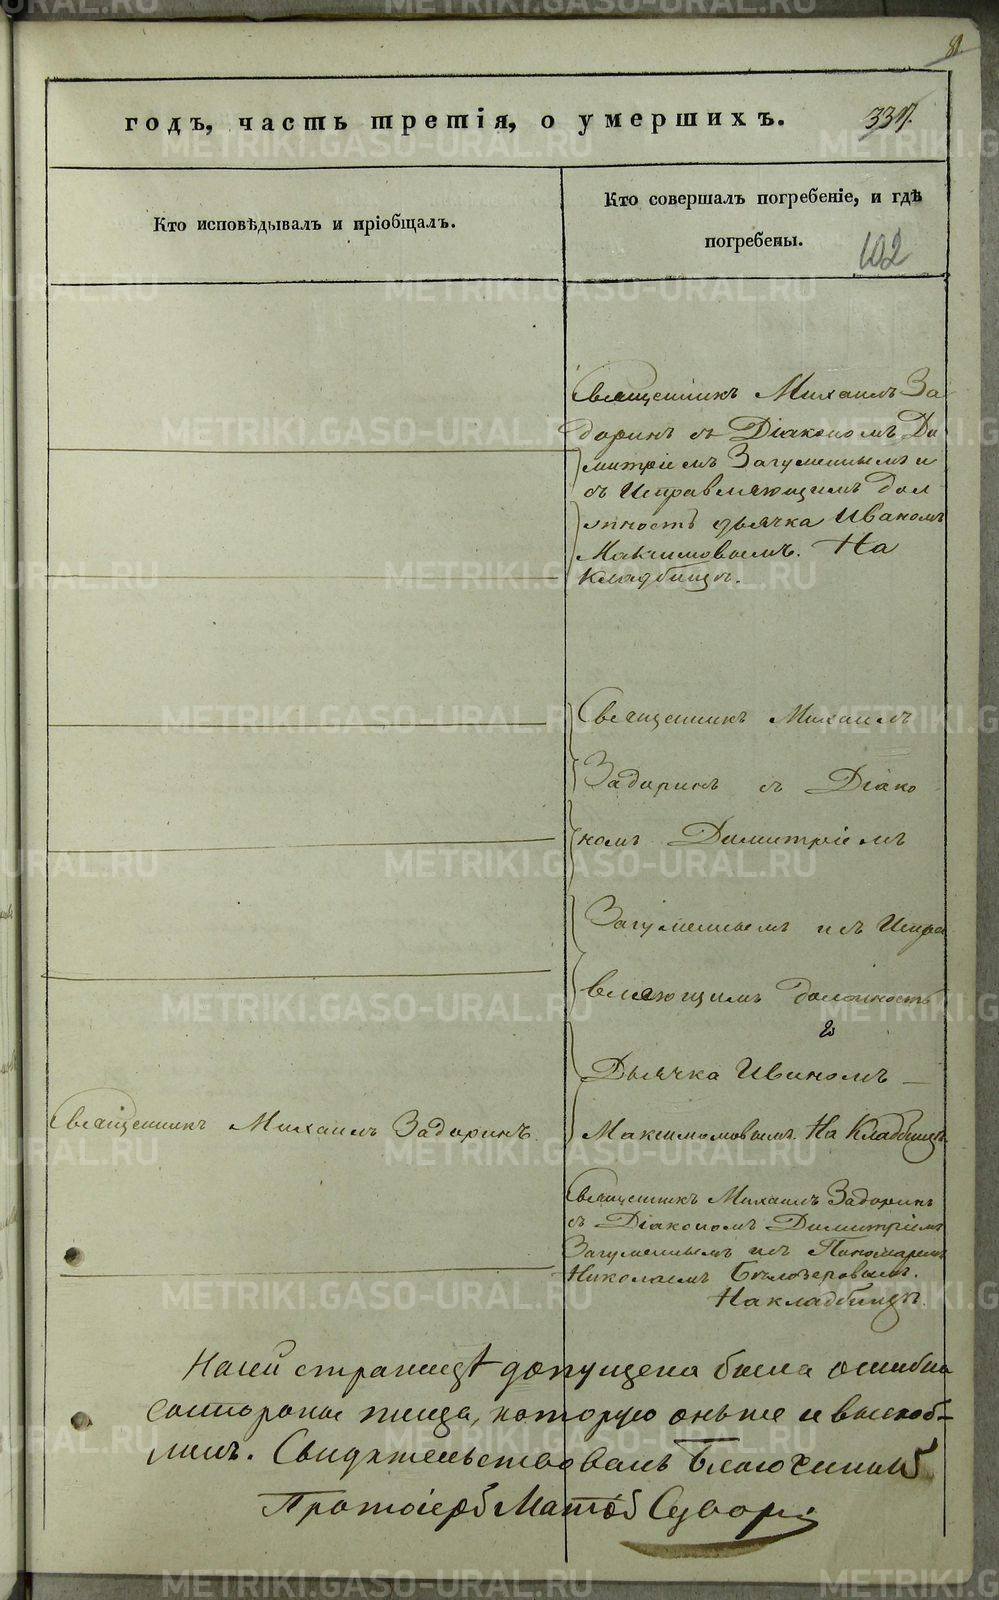 81
годъ, часть третія, о умершихъ.
337.
Кто исповѣдывалъ и пріобщалъ.
Кто совершалъ погребеніе, и гдѣ
погребены.
102
Священникъ Михаилъ За
доринъ съ Діакономъ Ди
митріемъ Загуменнымъ и
съ Исправляющимъ дол
жность дьячка Иваномъ
Максимовымъ. На
кладбищѣ.
Священникъ Михаилъ
Задоринъ съ Діако
номъ Димитріемъ
Загуменнымъ и съ Испра
вляющимъ должность
Дьячка Иваномъ
Священникъ Михаилъ Задоринъ.
Максимомовымъ. На Кладбищѣ.
Священникъ Михаилъ Задоринъ
съ Діакономъ Димитріемъ
Загуменнымъ и съ Пономаремъ
Николаемъ Бѣлозеровымъ.
На кладбищѣ.
На сей страницѣ допущена была ошибка
которую онъ же и выскоб-
лилъ. Свидѣтельствовалъ Благочинный
Протоіерей Матѳей Суворо
METRIKI.GASO-URAL.RU